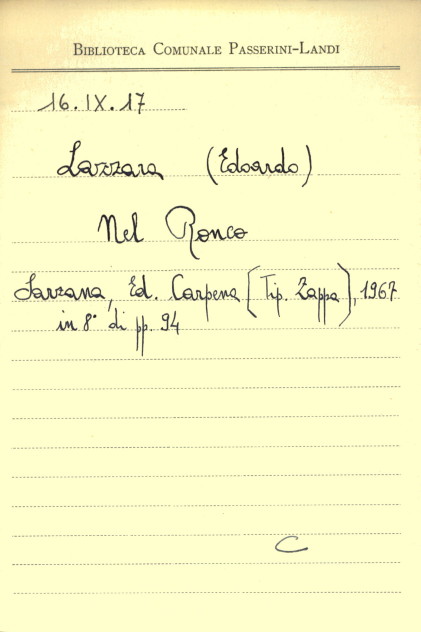 BIBLIOTECA COMUNALE PASSERINI-LANDI
16.IX.17
Lazzara (Edoardo)
Nel Ronco
Sarzana, Ed. Carpena [Tip. Zappa], 1967
in 8° di pp. 94
C